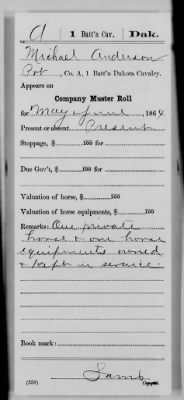 A 1 Batt'n Cav. Dak.
Michael Anderson
Pvt, Co. A, 1 Batt'n Dakota Cavalry.
Appears on
Company Muster Roll
for May & June, 1864
Present or absent Present
Stoppage, $ 100 for
Due Gov't, $ 100 for
Valuation of horse, $ 100
Valuation of horse equipments, $ 100
Remarks: One private
horse & one horse
equipments owned
& kept in service.
Book mark:
Lamb
(858) Copyist.